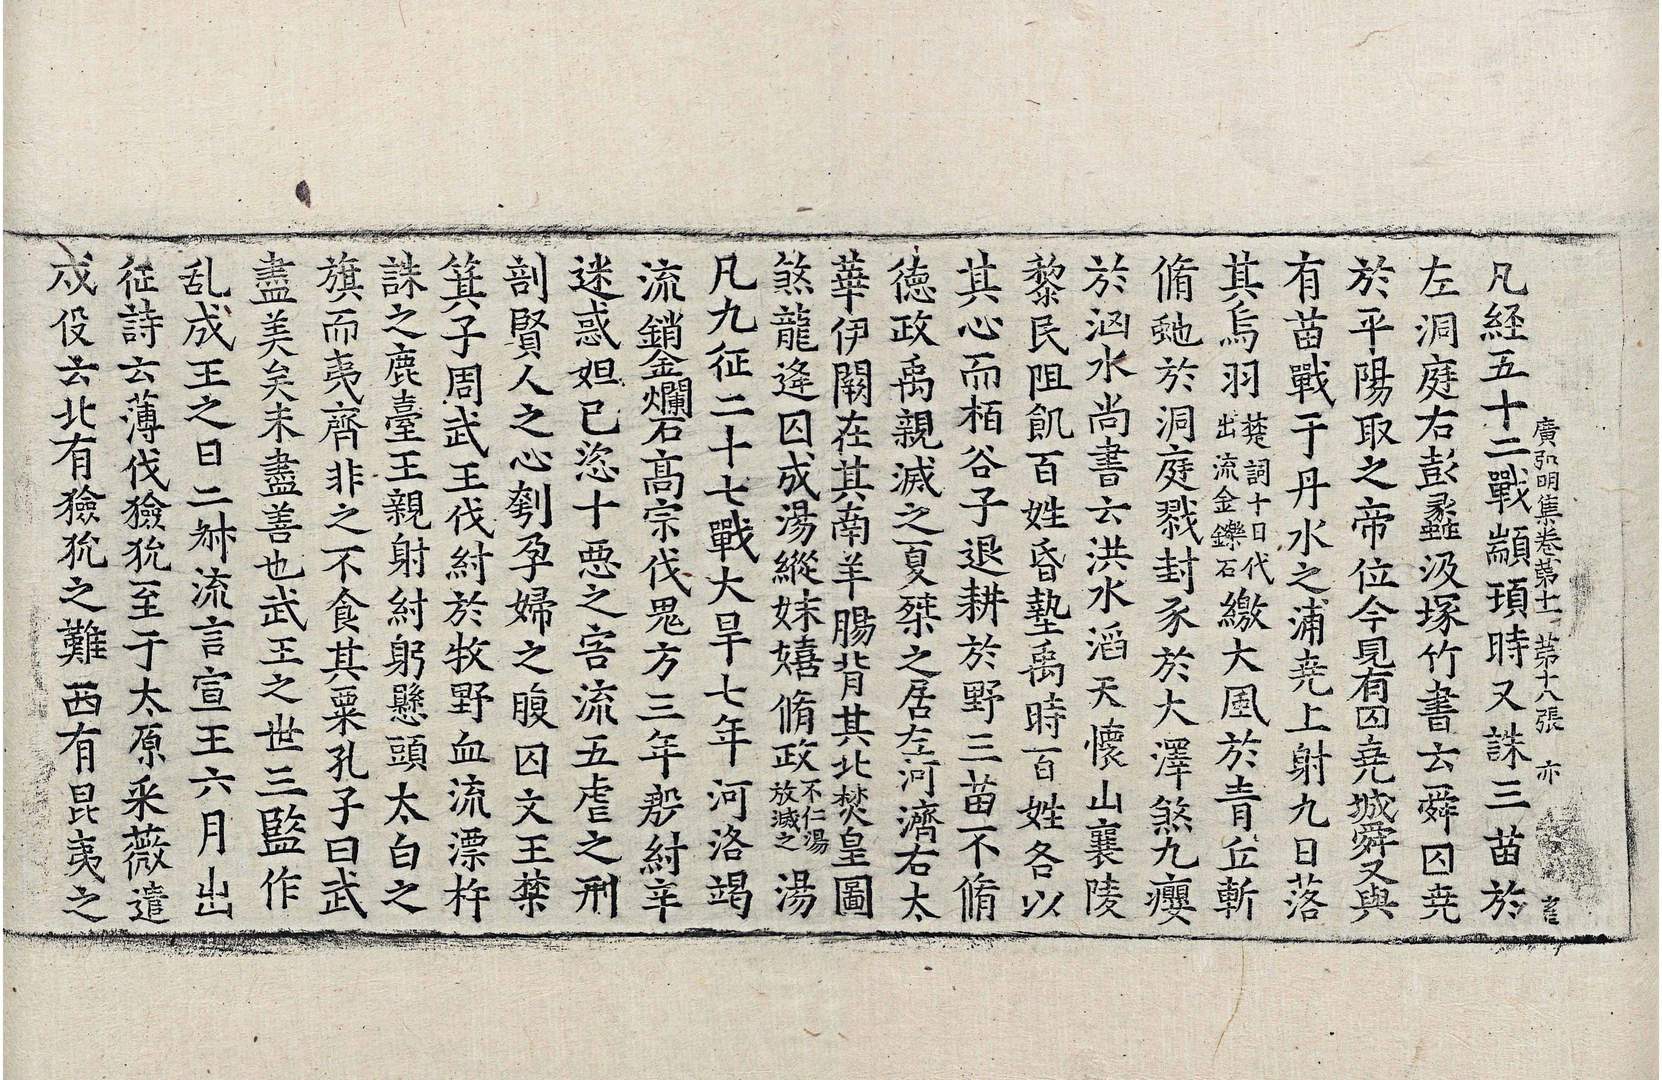 廣弘明集卷第十一　第十八張　亦
凡経五十二戰顓頊時又誅三苗於
左洞庭右彭蠡汲塚竹書云舜囚堯
於平陽取之帝位今見有囚堯城舜又與
有苗戰于丹水之浦堯上射九日落
其烏羽楚詞十日代出流金鑠石繳大風於青丘斬
脩虵於洞庭戮封豕於大澤煞九癭
於汹水尚書云洪水滔天懷山襄陵
黎民阻飢百姓昏墊禹時百姓各以
其心而栢谷子退耕於野三苗不脩
德政禹親滅之夏桀之居左河濟右太
華伊闕在其南羊腸背其北焚皇圖
煞龍逄囚成湯縱妺嬉脩政不仁湯放滅之湯
凡九征二十七戰大旱七年河洛竭
流銷金爛石髙宗伐鬼方三年殷紂辛
迷惑妲己恣十惡之害流五虐之刑
剖賢人之心刳孕婦之腹囚文王禁
箕子周武王伐紂於牧野血流漂杵
誅之鹿臺王親射紂躬懸頭太白之
旗而夷齊非之不食其粟孔子曰武
盡美矣未盡善也武王之世三監作
乱成王之日二叔流言宣王六月出
征詩云薄伐獫狁至于太原采薇遣
戍役云北有獫狁之難西有昆夷之